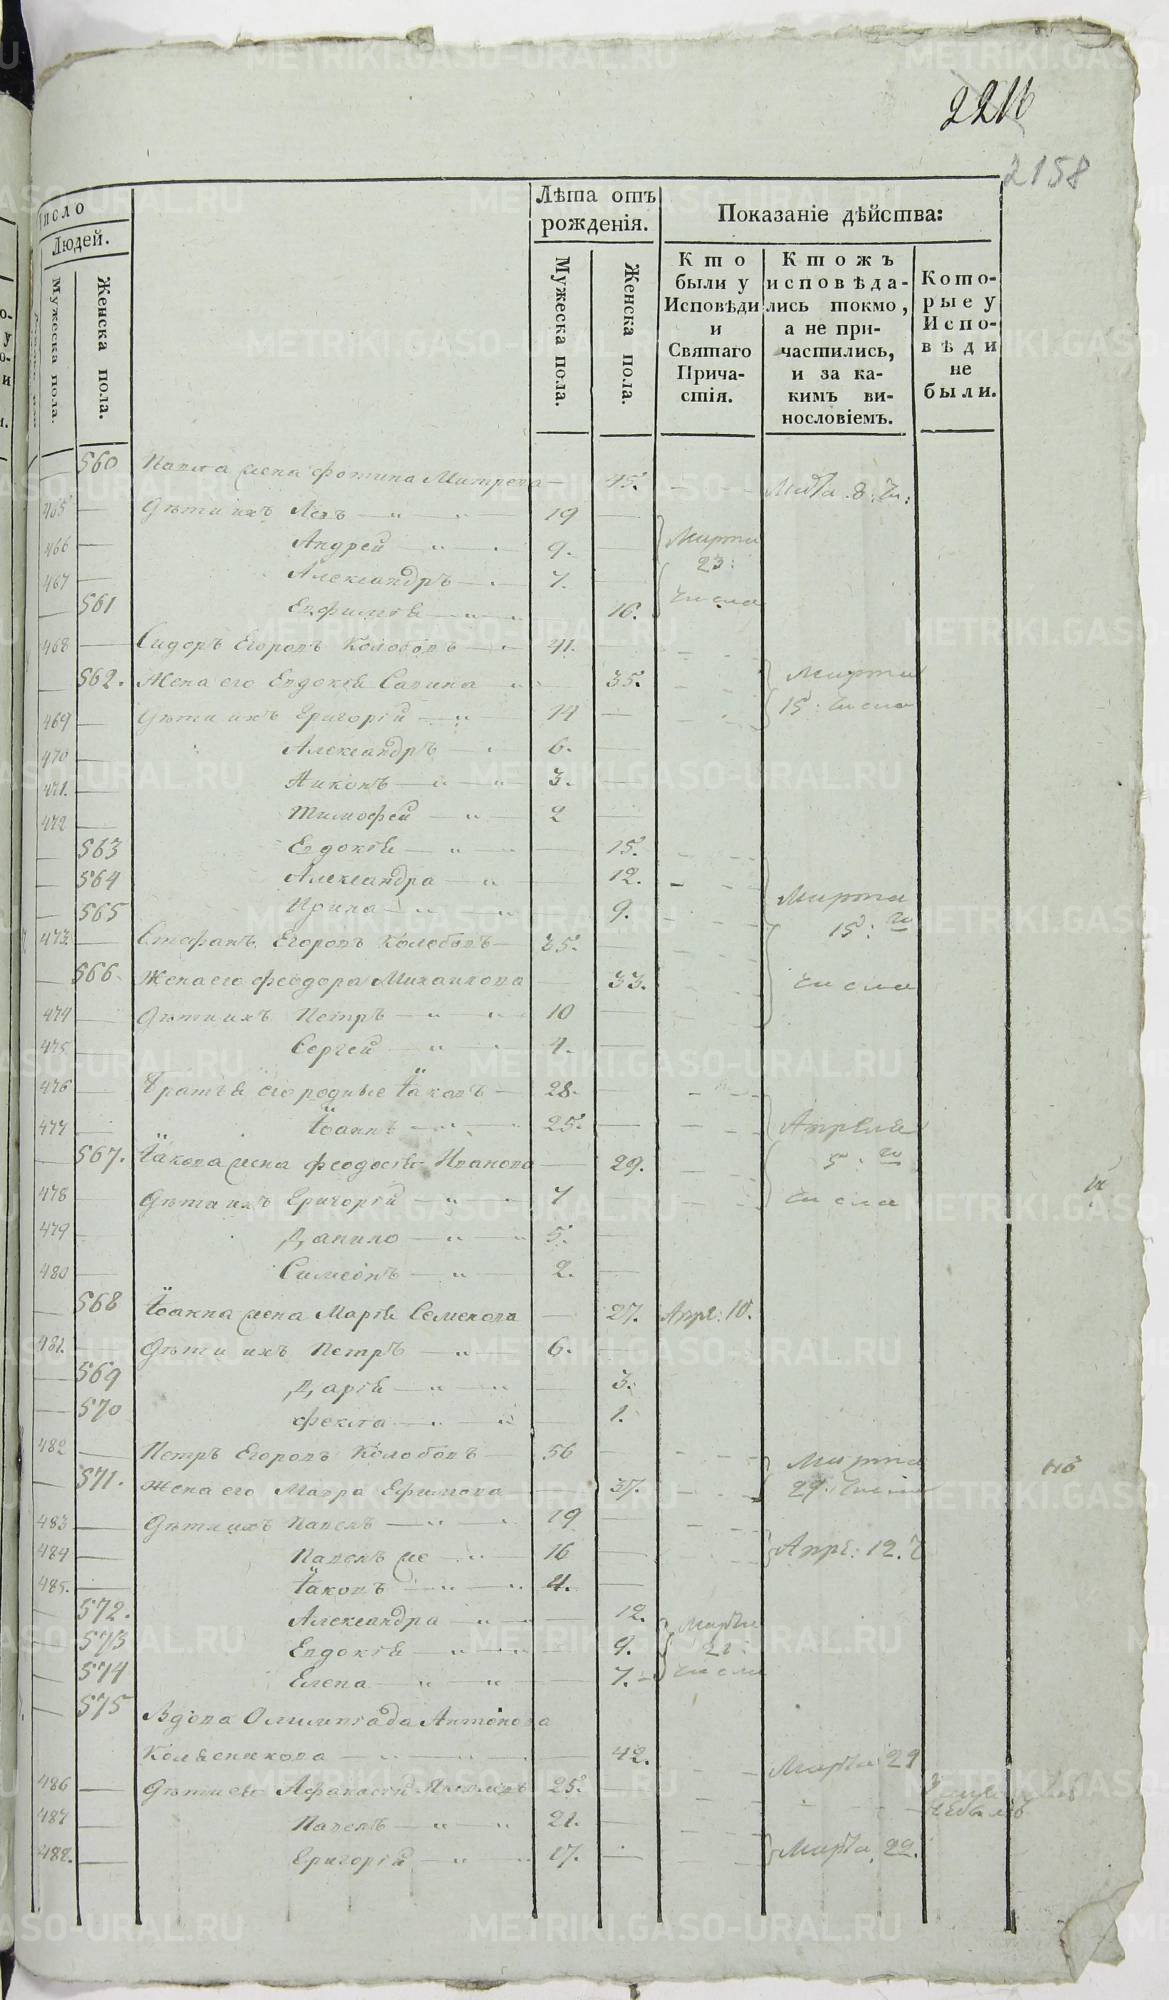 2216
2158
число
Людей.
Мужеска пола.
Женска пола.
Лѣта отъ рожденія.
Мужеска пола.
Женска пола.
Показаніе дѣйства:
Кто были у Исповѣди и Святаго Причастія.
Ктожъ исповѣдались токмо, а не причастились, и за какимъ винословіемъ.
Которые у Исповѣди не были.
560 Павла жена Фотина Митрева 45.
465 Дѣти ихъ 19
466 Андрей 9. Марта
467 Александръ 7. 23:
561 Евфимія 16. числа
468 Сидоръ Егоровъ Колобовъ 41.
562. Жена его Евдокія Савина 35. Марта
469 Дѣти ихъ Григорій 14 15: числа
470 Александръ 6.
471. 3.
472 Тимофей 2
563 Евдокія 15.
564 Александра 12.
565 Ирина 9. Марта
473. Стефанъ Егоровъ Колобовъ 35. 15: го
566. Жена его Феодора Михаилова 33. числа
474 Дѣти ихъ Петръ 10
475 Сергей 4.
476 Братья его родные Іаковъ 28.
477 Іоаннъ 25. Апреля
567. Іакова жена Феодосія Иванова 29. 5: го
478 Дѣти ихъ Григорій 7 числа
479 Данило 5.
480 Симеонъ 2.
568 Іоанна жена Марія Семенова 27. Апрѣ: 10.
481. Дѣти ихъ Петръ 6.
569 Дарія 3.
570 Фекла 1.
482 Петръ Егоровъ Колобовъ 56 Марта
571. Жена его Мавра Ефимова 37. 29. числа
483 Дѣти ихъ Павелъ 19
484 Павелъ же 16 Апрѣ: 12.
485. Іаковъ 4.
572. Александра 12. Марта
573 Евдокія 9. 21:
574 Елена 7. числа
575 Вдова Олимпіада Антонова
Колясникова 42. Марта 29
486 Дѣти ея Афанасій 25.
487 Павелъ 21. небылъ
488. Григорій 17. Марта 29.